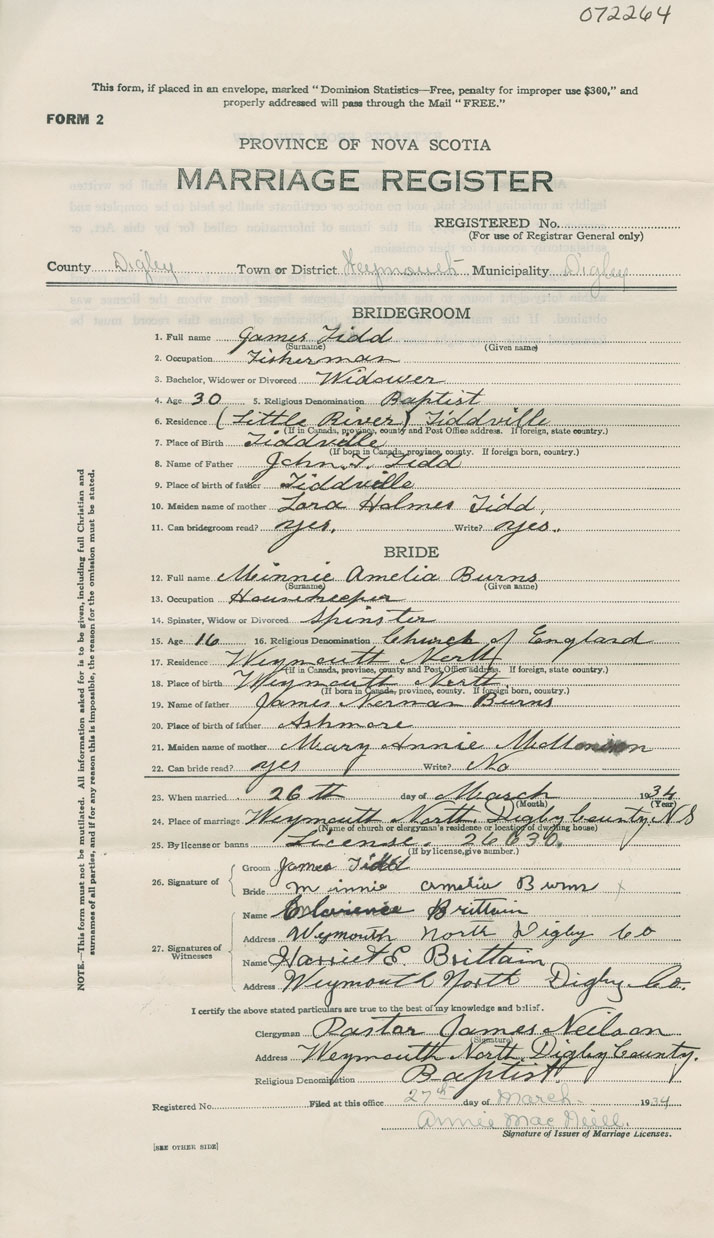 072264
This form, if placed in an envelope, marked "Dominion Statistics—Free, penalty for improper use $300," and
properly addressed will pass through the Mail "FREE."
FORM 2
PROVINCE OF NOVA SCOTIA
MARRIAGE REGISTER
REGISTERED No.
(For use of Registrar General only)
County Digby Town or District Weymouth Municipality Digby
BRIDEGROOM
1. Full name James Tidd
(Surname) (Given name)
2. Occupation Fisherman
3. Bachelor, Widower or Divorced Widower
4. Age 30 5. Religious Denomination Baptist
6. Residence (Little River) Tiddville
(If in Canada, province, county and Post Office address. If foreign, state country.)
7. Place of Birth Tiddville
(If born in Canada, province, county. If foreign born, country.)
8. Name of Father John T. Tidd
9. Place of birth of father Tiddville
10. Maiden name of mother Lora Holmes Tidd,
11. Can bridegroom read? yes, Write? yes.
BRIDE
12. Full name Minnie Amelia Burns
(Surname) (Given name)
13. Occupation Housekeeper
14. Spinster, Widow or Divorced Spinster
15. Age 16 16. Religious Denomination Church of England
17. Residence Weymouth North
(If in Canada, province, county and Post Office address. If foreign, state country.)
18. Place of birth Weymouth North
(If born in Canada, province, county. If foreign born, country.)
19. Name of father James Norman Burns
20. Place of birth of father Ashmore
21. Maiden name of mother Mary Annie
22. Can bride read? yes Write? No
23. When married 26th day of March 1934
(Month) (Year)
24. Place of marriage Weymouth North, Digby County. N S
(Name of church or clergyman's residence or location of dwelling house)
25. By license or banns License. 26030.
(If by license, give number.)
26. Signature of
Groom James Tidd
Bride Minnie Amelia Burns x
27. Signatures of Witnesses
Name Clarence Brittain
Address Weymouth North Digby Co
Name Harriet E. Brittain
Address Weymouth North Digby Co.
I certify the above stated particulars are true to the best of my knowledge and belief.
Clergyman Pastor James Neilson
(Signature)
Address Weymouth North, Digby County.
Religious Denomination Baptist
Registered No. Filed at this office 27th day of March 1934
Annie MacNeill.
Signature of Issuer of Marriage Licenses.
[SEE OTHER SIDE]
NOTE.—This form must not be mutilated. All information asked for is to be given, including full Christian and
surnames of all parties, and if for any reason this is impossible, the reason for the omission must be stated.